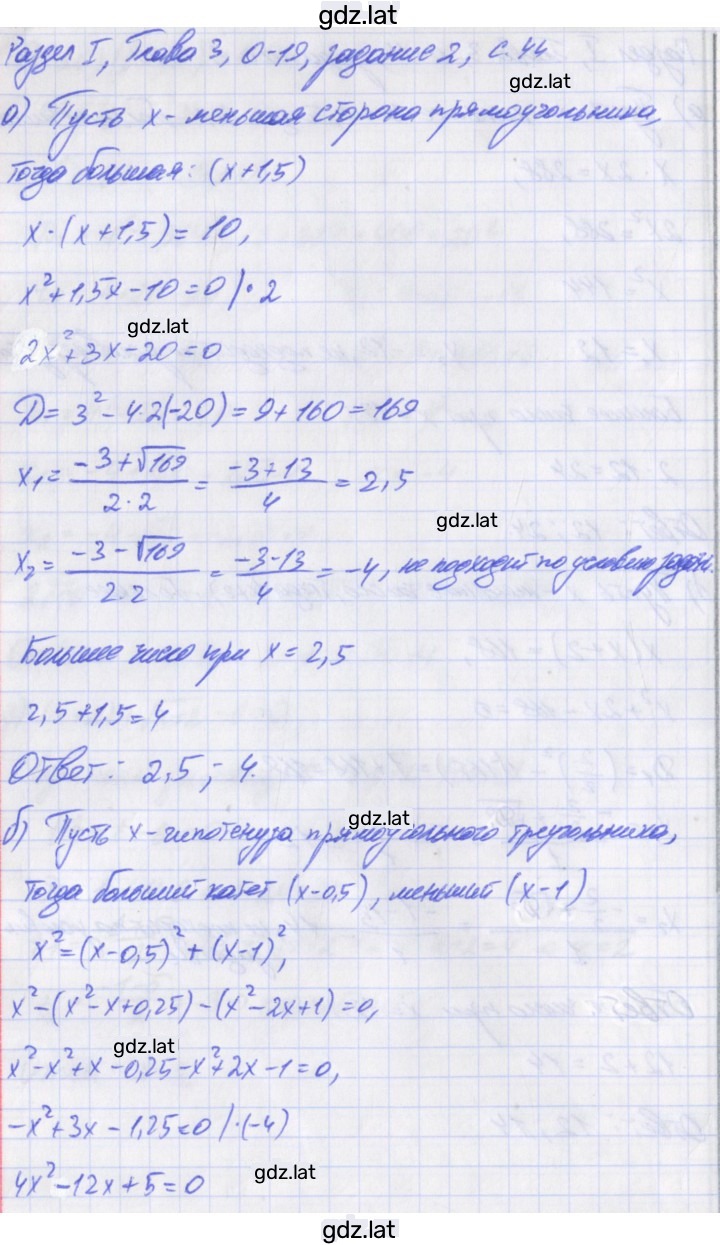 gdz.lat
Раздел I, Глава 3, О-19, задание 2, с.44
gdz.lat
а) Пусть x - меньшая сторона прямоугольника,
тогда большая: (x+1,5)
x·(x+1,5)=10,
x²+1,5x-10=0 |·2
gdz.lat
2x²+3x-20=0
D=3²-4·2(-20)=9+160=169
x₁= (-3+√169)/(2·2) = (-3+13)/4 = 2,5
gdz.lat
x₂= (-3-√169)/(2·2) = (-3-13)/4 = -4, не подходит по условию задачи.
Большее число при x=2,5
2,5+1,5=4
Ответ: 2,5; 4.
gdz.lat
б) Пусть x - гипотенуза прямоугольного треугольника,
тогда больший катет (x-0,5), меньший (x-1)
x²=(x-0,5)²+(x-1)²,
x²-(x²-x+0,25)-(x²-2x+1)=0,
gdz.lat
x²-x²+x-0,25-x²+2x-1=0,
-x²+3x-1,25=0 |·(-4)
4x²-12x+5=0
gdz.lat
gdz.lat